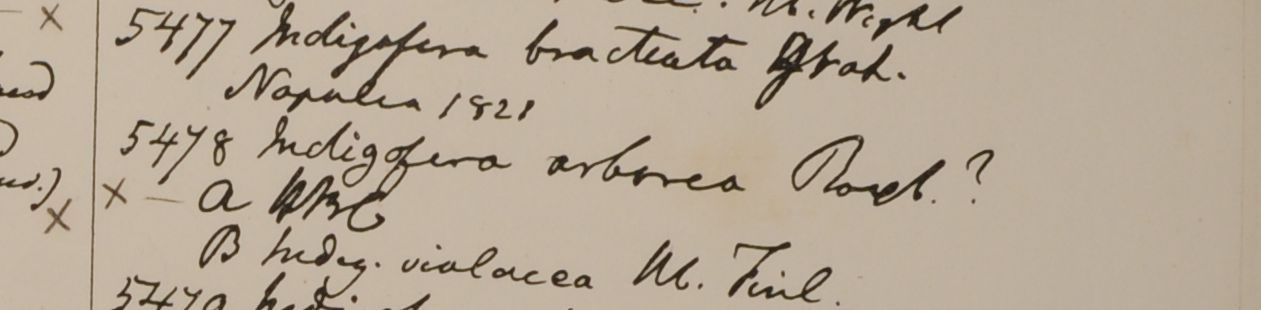 M. Wight
5477 Indigofera bracteata Grah.
Napalia 1821
5478 Indigofera arborea Roxb.?
a HBC
B Indig. violacea M. Finl.
5479